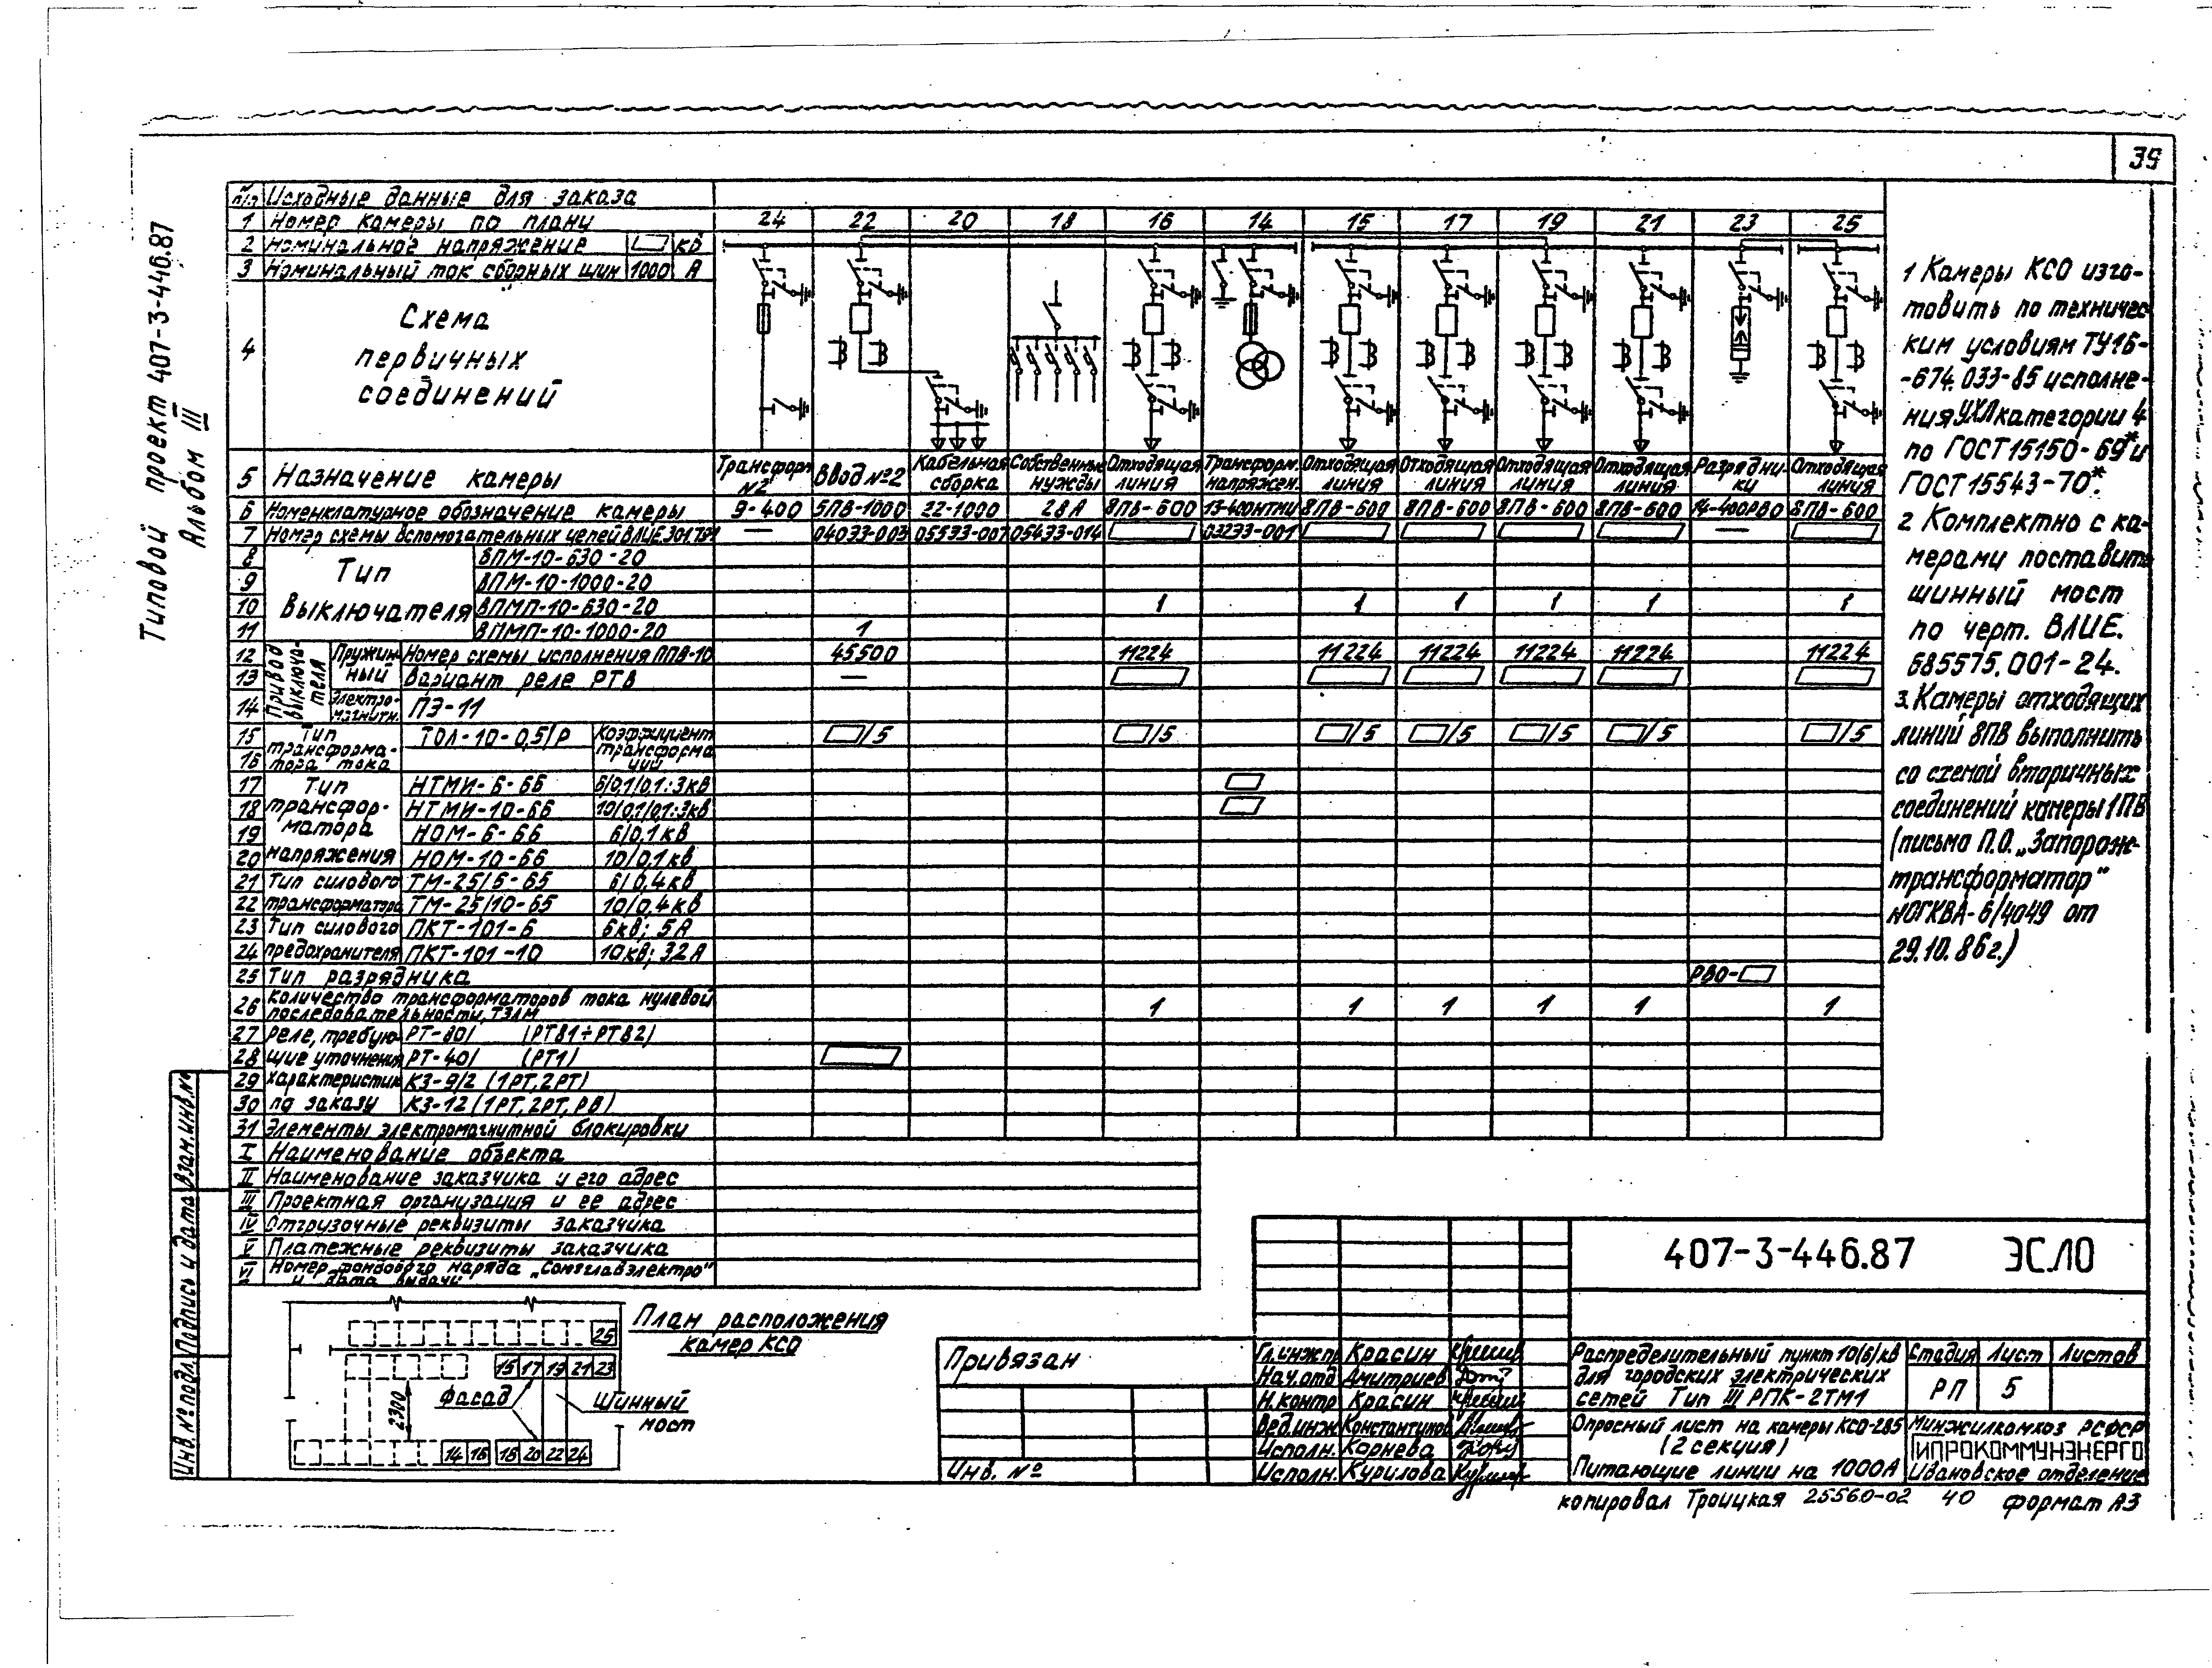 39
Типовой проект 407-3-446.87
Альбом III
п/п Исходные данные для заказа
1 Номер камеры по плану 24 22 20 18 16 14 15 17 19 21 23 25
2 Номинальное напряжение кВ
3 Номинальный ток сборных шин 1000 А
4 Схема первичных соединений
5 Назначение камеры
Трансформ. №2
Ввод №2
Кабельная сборка
Собственные нужды
Отходящая линия
Трансформ. напряжен.
Отходящая линия
Отходящая линия
Отходящая линия
Отходящая линия
Разрядники
Отходящая линия
6 Номенклатурное обозначение камеры 9-400 5ПВ-1000 22-1000 28А 8ПВ-600 13-400НТМИ 8ПВ-600 8ПВ-600 8ПВ-600 8ПВ-600 14-400РВО 8ПВ-600
7 Номер схемы вспомогательных цепей ВЛИЕ.301.731 — 04033-003 05533-007 05433-014 03233-001 —
Тип выключателя
8 ВПМ-10-630-20
9 ВПМ-10-1000-20
10 ВПМП-10-630-20 1 1 1 1 1 1
11 ВПМП-10-1000-20 1
Привод выключателя
12 Пружинный Номер схемы исполнения ППВ-10 45500 11224 11224 11224 11224 11224 11224
13 Вариант реле РТВ —
14 Электромагнитн. ПЭ-11
15 Тип трансформатора тока ТОЛ-10-0,5/Р Коэффициент трансформации /5 /5 /5 /5 /5 /5 /5
16
17 Тип НТМИ-6-66 6/0,1/0,1:3кВ
18 трансфор- НТМИ-10-66 10/0,1/0,1:3кВ
19 матора НОМ-6-66 6/0,1кВ
20 напряжения НОМ-10-66 10/0,1кВ
21 Тип силового ТМ-25/6-65 6/0,4кВ
22 трансформатора ТМ-25/10-65 10/0,4кВ
23 Тип силового ПКТ-101-6 6кВ; 5А
24 предохранителя ПКТ-101-10 10кВ; 3,2А
25 Тип разрядника РВО-
26 Количество трансформаторов тока нулевой последовательности, ТЗЛМ 1 1 1 1 1 1
27 Реле, требую- РТ-80/ (РТ81÷РТ82)
28 щие уточнения РТ-40/ (РТ1)
29 характеристик КЗ-9/2 (1РТ, 2РТ)
30 по заказу КЗ-12 (1РТ, 2РТ, РВ)
31 Элементы электромагнитной блокировки
I Наименование объекта
II Наименование заказчика и его адрес
III Проектная организация и ее адрес
IV Отгрузочные реквизиты заказчика
V Платежные реквизиты заказчика
VI Номер фондового наряда „Союзглавэлектро"
и дата выдачи
1 Камеры КСО изго-
товить по техничес-
ким условиям ТУ16-
-674.033-85 исполне-
ния УХЛ категории 4
по ГОСТ 15150-69* и
ГОСТ 15543-70*.
2 Комплектно с ка-
мерами поставить
шинный мост
по черт. ВЛИЕ.
685575.001-24.
3. Камеры отходящих
линий 8ПВ выполнить
со схемой вторичных
соединений камеры 1ПВ
(письмо П.О. „Запорож-
трансформатор"
НОГКВА-6/4049 от
29.10.86г.)
План расположения
камер КСО
25
15 17 19 21 23
Фасад
Шинный
мост
2300
14 16 18 20 22 24
Взам.инв.№
Подпись и дата
Инв.№ подл.
Привязан
Инв. №
Гл.инж.пр Красин
Нач.отд Дмитриев
Н.контр Красин
Вед.инж Константинов
Исполн. Корнева
Исполн. Курилова
407-3-446.87 ЭС.ЛО
Распределительный пункт 10(6)кВ
для городских электрических
сетей Тип III РПК-2ТМ1
Стадия Лист Листов
РП 5
Опросный лист на камеры КСО-285
(2 секция)
Питающие линии на 1000А
Минжилкомхоз РСФСР
ГИПРОКОММУНЭНЕРГО
Ивановское отделение
копировал Троицкая 25560-02 40 формат А3